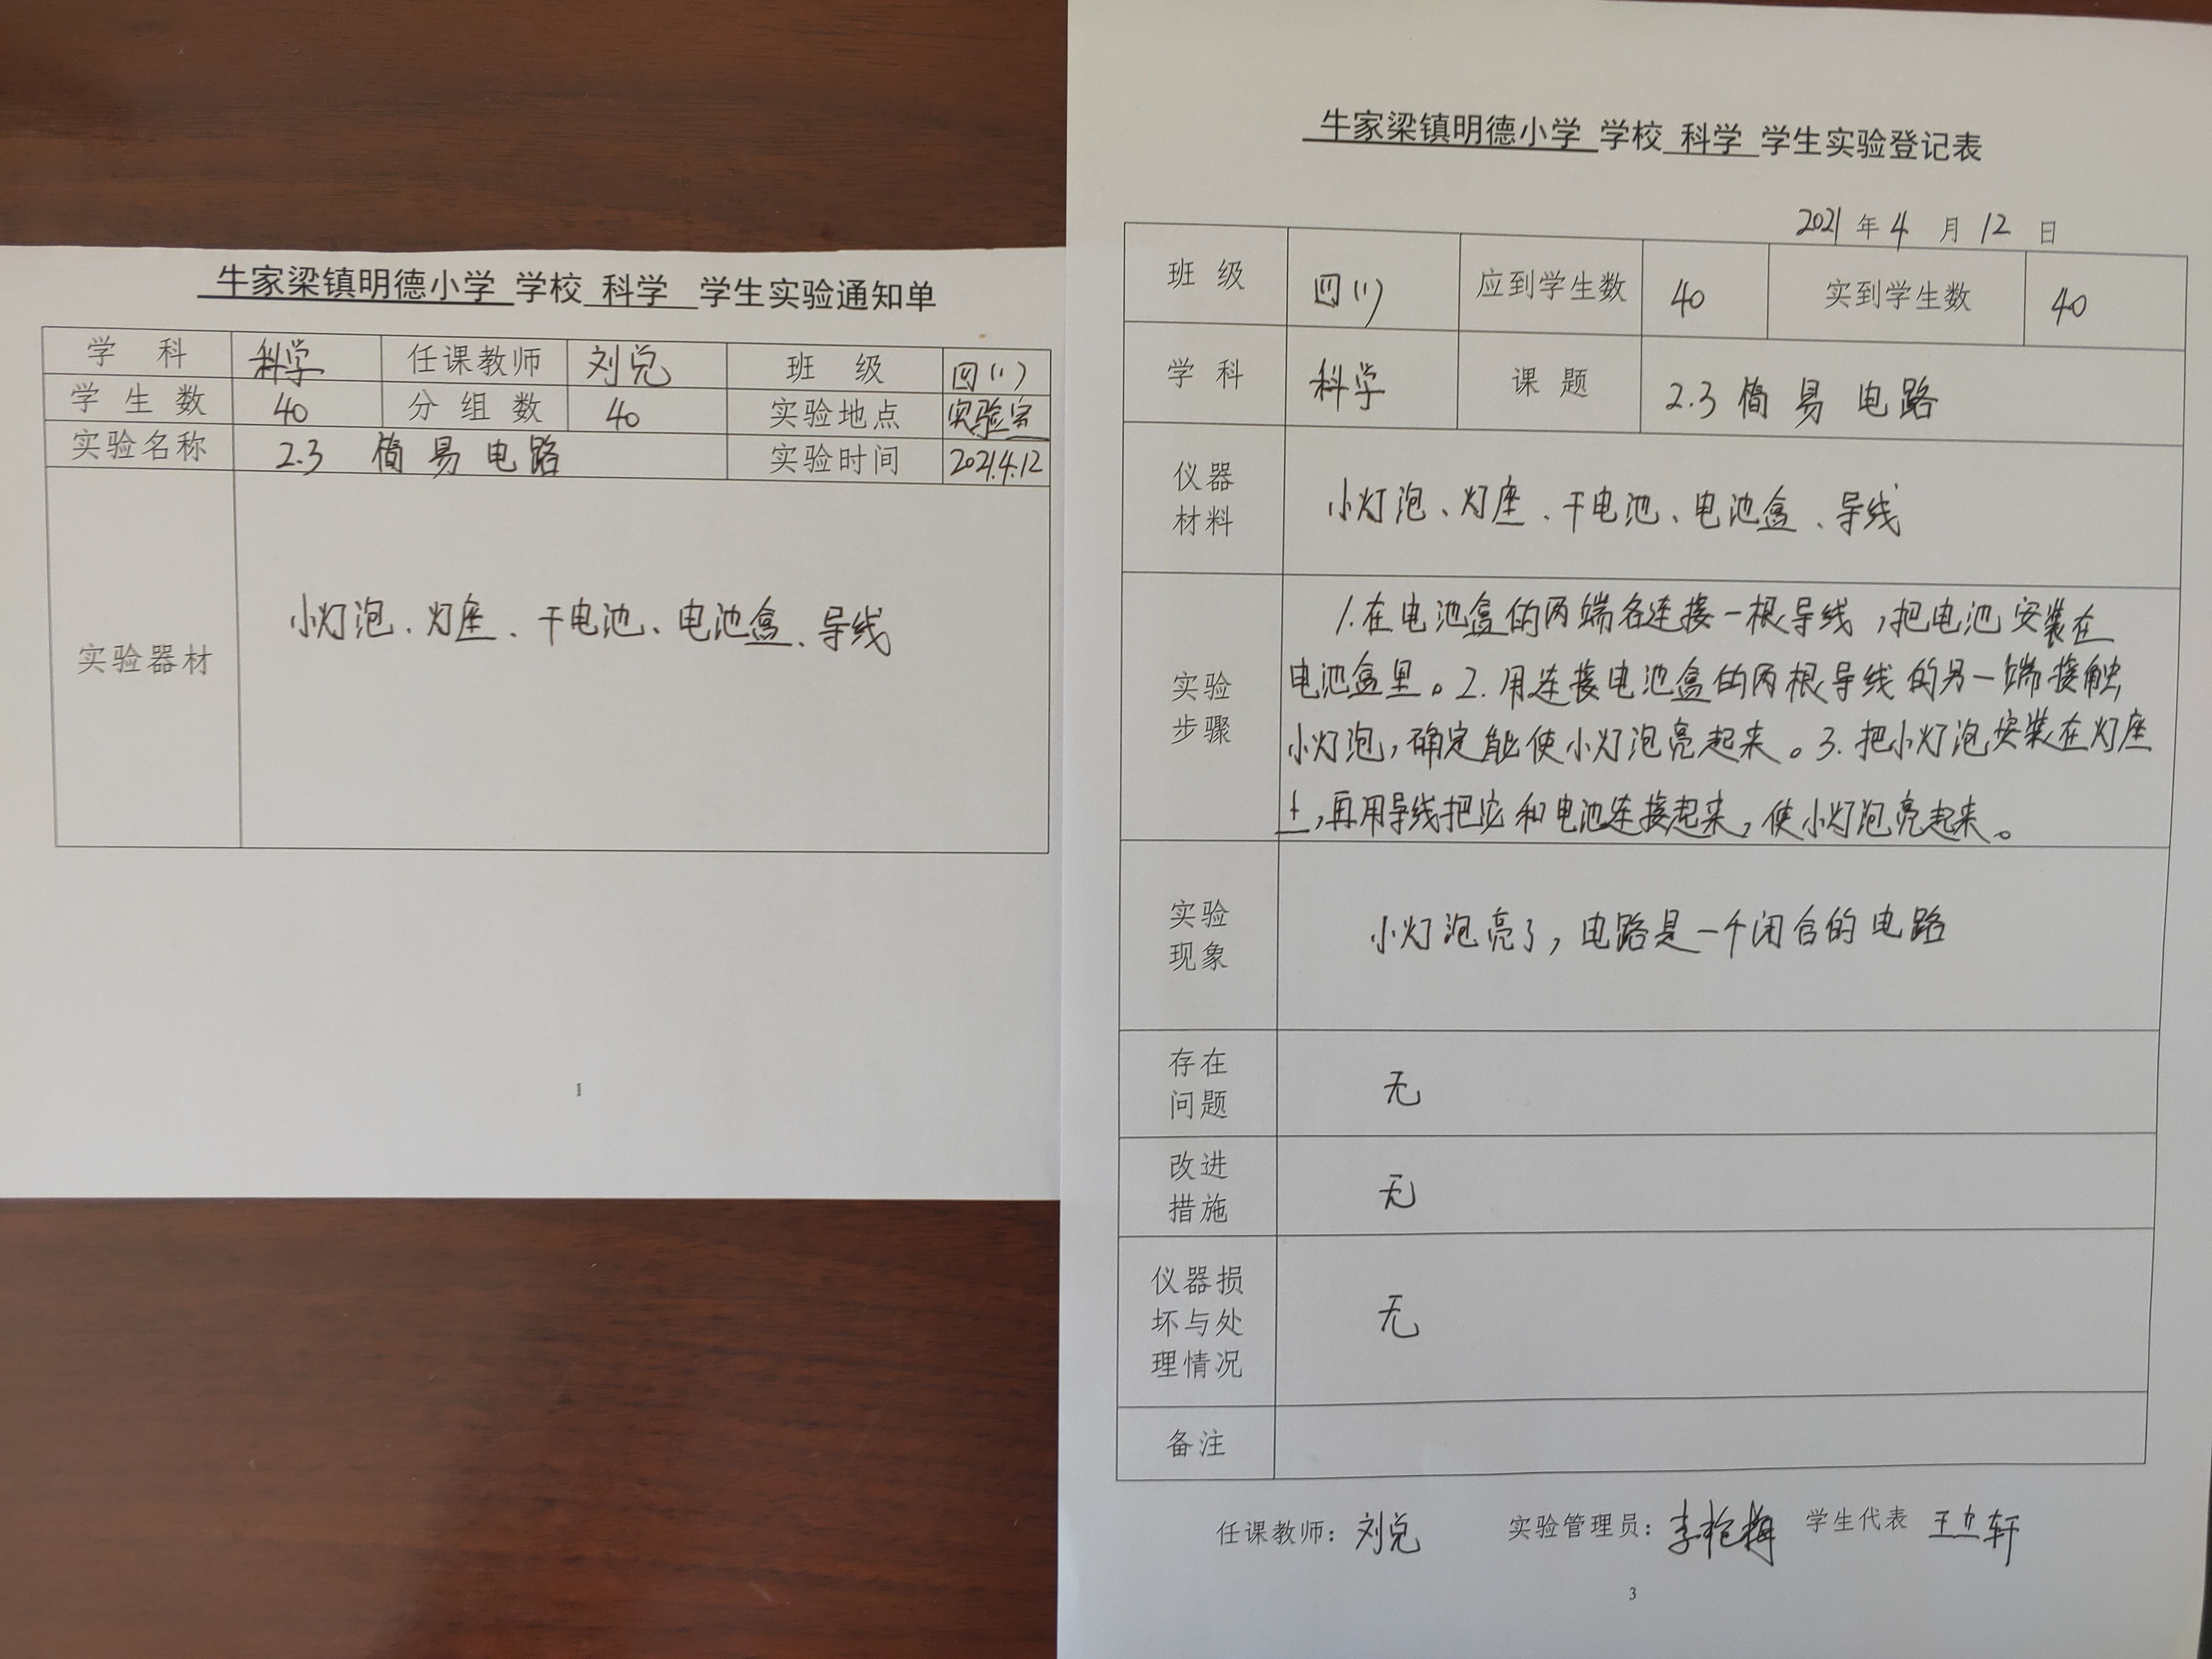 牛家梁镇明德小学 学校 科学 学生实验通知单
学 科 科学 任课教师 刘兑 班 级 四(1)
学 生 数 40 分 组 数 40 实验地点 实验室
实验名称 2.3 简易电路 实验时间 2021.4.12
实验器材 小灯泡、灯座、干电池、电池盒、导线
1
牛家梁镇明德小学 学校 科学 学生实验登记表
2021 年 4 月 12 日
班 级 四(1) 应到学生数 40 实到学生数 40
学 科 科学 课 题 2.3 简易电路
仪器
材料
小灯泡、灯座、干电池、电池盒、导线
实验
步骤
1.在电池盒的两端各连接一根导线,把电池安装在
电池盒里。2.用连接电池盒的两根导线的另一端接触
小灯泡,确定能使小灯泡亮起来。3.把小灯泡安装在灯座
上,再用导线把它和电池连接起来,使小灯泡亮起来。
实验
现象
小灯泡亮了,电路是一个闭合的电路
存在
问题
无
改进
措施
无
仪器损
坏与处
理情况
无
备注
任课教师: 刘兑 实验管理员: 李艳梅 学生代表
3